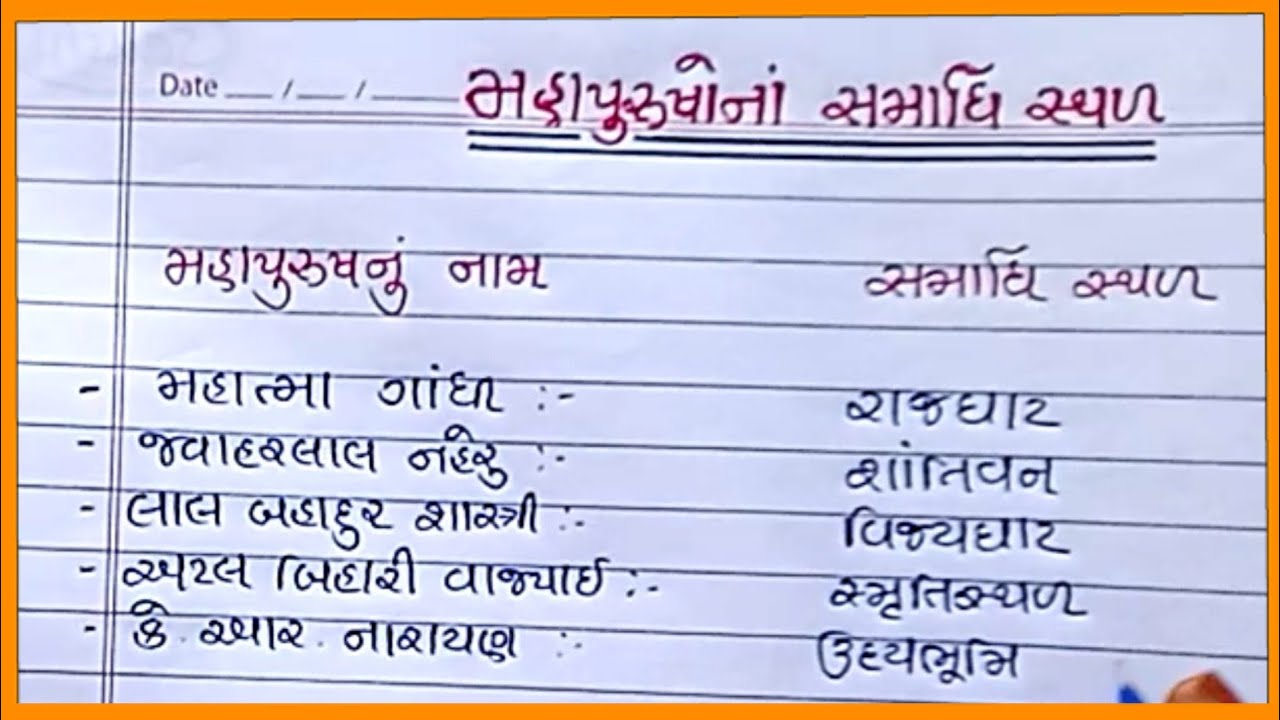 Date __/__/____ મહાપુરુષોનાં સમાધિ સ્થળ
મહાપુરુષનું નામ સમાધિ સ્થળ
- મહાત્મા ગાંધી :- રાજઘાટ
- જવાહરલાલ નહેરુ :- શાંતિવન
- લાલ બહાદુર શાસ્ત્રી :- વિજયઘાટ
- અટલ બિહારી વાજ્પાઈ :- સ્મૃતિસ્થળ
- કે. આર. નારાયણ :- ઉદયભૂમિ